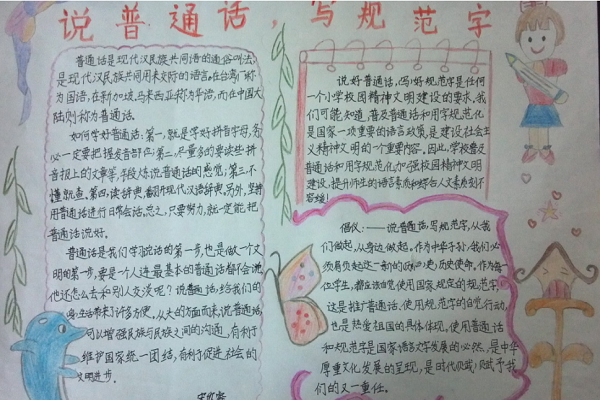 说普通话，写规范字
普通话是现代汉民族共同语的通俗叫法,
是现代汉民族共同用来交际的语言,在台湾广称
为国语,在新加坡、马来西亚称为华语,而在中国大
陆则称为普通话.
如何学好普通话:第一,就是学好拼音字母,务
必一定要把握发音部位;第二,尽量多的要读些拼
音报上的文章等,手段练说普通话的感觉;第三,不
懂就查.第四,读辞典,翻开现代汉语辞典.另外,坚持
用普通话进行日常会话.总之,只要努力,就一定能把
普通话说好.
普通话是我们学说话的第一步,也是做一个文
明的第一步,要是一个人连最基本的普通话都不会说
他还怎么去和别人交流呢?说普通话,给我们的
生活带来了许多方便,从大的方面而来,说普通话,
可以增强民族与民族之间的沟通,有利于
维护国家统一团结,有利于促进社会的
文明进步.
说好普通话,写好规范字是任何
一个小学校园精神文明建设的要求,我
们可能知道,普及普通话和用字规范化
是国家一项重要的语言政策,是建设社会主
义精神文明的一个重要内容。因此,学校普及
普通话和用字规范化,加强校园精神文明
建设,提升师生的语言素质和综合人文素质刻不
容缓!
倡仪:——说普通话,写规范字,从我
们做起,从身边做起。作为中华子孙,我们必
须肩负起这一新的历史使命。作为每
位学生,都应该自觉使用国家规定的规范字
这是推广普通话、使用规范字的自觉行动,
也是热爱祖国的具体体现。使用普通话
和规范字是国家语言文字发展的必然,是中华
厚重文化发展的呈现,是时代赋予我
们的又一重任。